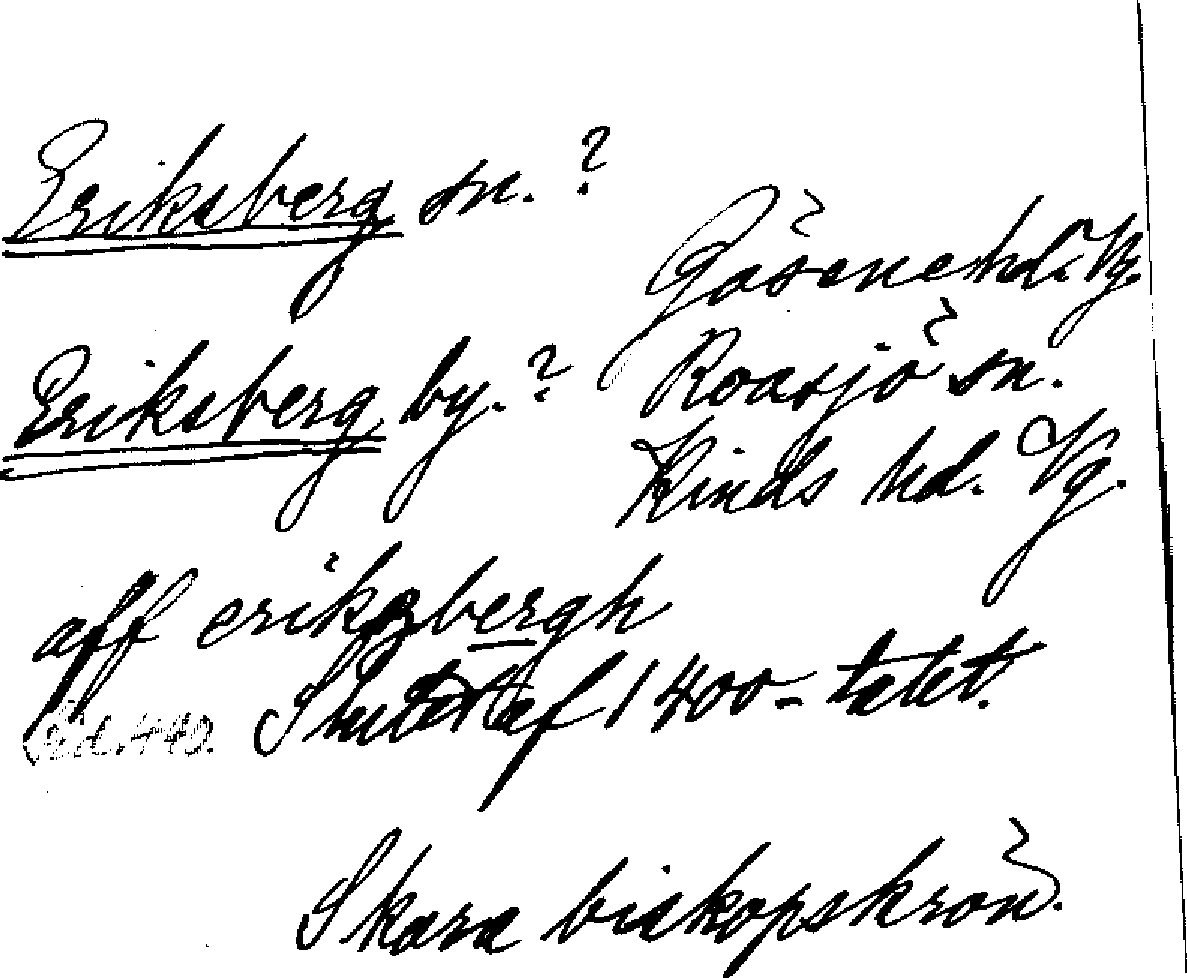 Eriksberg sn.?
Gäsene hd. Vg.
Eriksberg by.? Roasjö sn.
Kinds hd. Vg.
aff erikzbergh
Slutet af 1400-talet.
Skara biskopskrön.